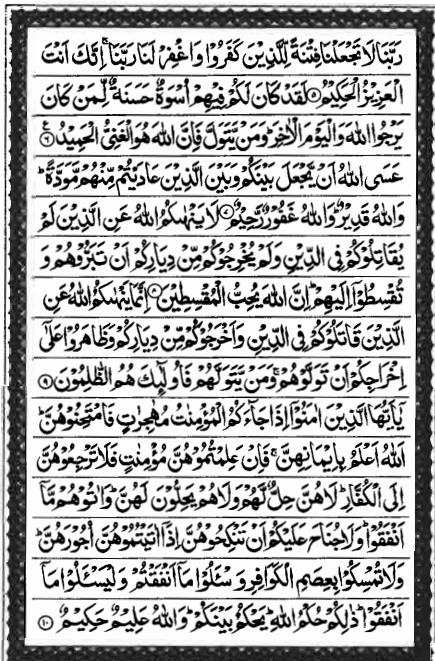 رَبَّنَا لَا تَجْعَلْنَا فِتْنَةً لِّلَّذِيْنَ كَفَرُوْا وَاغْفِرْ لَنَا رَبَّنَا ۚ اِنَّكَ اَنْتَ
الْعَزِيْزُ الْحَكِيْمُ ۵ لَقَدْ كَانَ لَكُمْ فِيْهِمْ اُسْوَةٌ حَسَنَةٌ لِّمَنْ كَانَ
يَرْجُوا اللّٰهَ وَالْيَوْمَ الْاٰخِرَ ؕ وَمَنْ يَّتَوَلَّ فَاِنَّ اللّٰهَ هُوَ الْغَنِيُّ الْحَمِيْدُ ۶ ع
عَسَى اللّٰهُ اَنْ يَّجْعَلَ بَيْنَكُمْ وَبَيْنَ الَّذِيْنَ عَادَيْتُمْ مِّنْهُمْ مَّوَدَّةً ؕ
وَاللّٰهُ قَدِيْرٌ ؕ وَاللّٰهُ غَفُوْرٌ رَّحِيْمٌ ۷ لَا يَنْهٰىكُمُ اللّٰهُ عَنِ الَّذِيْنَ لَمْ
يُقَاتِلُوْكُمْ فِى الدِّيْنِ وَلَمْ يُخْرِجُوْكُمْ مِّنْ دِيَارِكُمْ اَنْ تَبَرُّوْهُمْ وَ
تُقْسِطُوْۤا اِلَيْهِمْ ؕ اِنَّ اللّٰهَ يُحِبُّ الْمُقْسِطِيْنَ ۸ اِنَّمَا يَنْهٰىكُمُ اللّٰهُ عَنِ
الَّذِيْنَ قَاتَلُوْكُمْ فِى الدِّيْنِ وَاَخْرَجُوْكُمْ مِّنْ دِيَارِكُمْ وَظَاهَرُوْا عَلٰۤى
اِخْرَاجِكُمْ اَنْ تَوَلَّوْهُمْ ۚ وَمَنْ يَّتَوَلَّهُمْ فَاُولٰٓئِكَ هُمُ الظّٰلِمُوْنَ ۹
يٰۤاَيُّهَا الَّذِيْنَ اٰمَنُوْۤا اِذَا جَآءَكُمُ الْمُؤْمِنٰتُ مُهٰجِرٰتٍ فَامْتَحِنُوْهُنَّ ؕ
اَللّٰهُ اَعْلَمُ بِاِيْمَانِهِنَّ ۚ فَاِنْ عَلِمْتُمُوْهُنَّ مُؤْمِنٰتٍ فَلَا تَرْجِعُوْهُنَّ
اِلَى الْكُفَّارِ ؕ لَا هُنَّ حِلٌّ لَّهُمْ وَلَا هُمْ يَحِلُّوْنَ لَهُنَّ ؕ وَاٰتُوْهُمْ مَّاۤ
اَنْفَقُوْا ؕ وَلَا جُنَاحَ عَلَيْكُمْ اَنْ تَنْكِحُوْهُنَّ اِذَاۤ اٰتَيْتُمُوْهُنَّ اُجُوْرَهُنَّ ؕ
وَلَا تُمْسِكُوْا بِعِصَمِ الْكَوَافِرِ وَسْـَٔلُوْا مَاۤ اَنْفَقْتُمْ وَلْيَسْـَٔلُوْا مَاۤ
اَنْفَقُوْا ؕ ذٰلِكُمْ حُكْمُ اللّٰهِ ؕ يَحْكُمُ بَيْنَكُمْ ؕ وَاللّٰهُ عَلِيْمٌ حَكِيْمٌ ۱۰